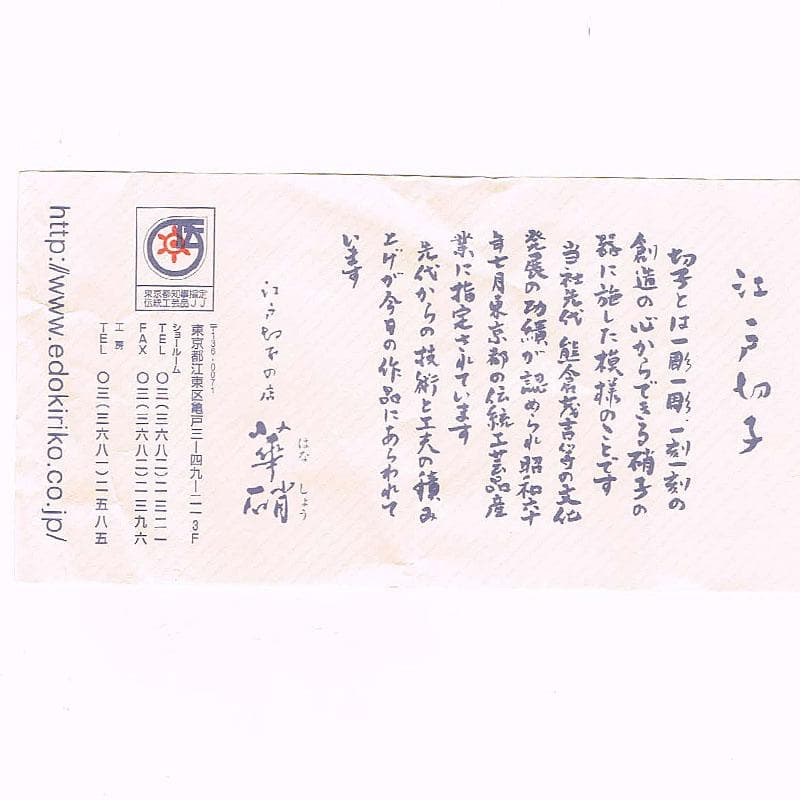 江戸切子
切子とは一彫一彫、一刻一刻の
創造の心からできる硝子の
器に施した模様のことです
当社先代 熊倉茂吉等の文化
発展の功績が認められ昭和六十
年七月東京都の伝統工芸品産
業に指定されています
先代からの技術と工夫の積み
上げが今日の作品にあらわれて
います
江戸切子の店
華硝
はな しょう
〒136-0071
東京都江東区亀戸三ー四九ー二一 3F
ショールーム
TEL 〇三(三六八二)二三二一
FAX 〇三(三六八二)二三九六
工房
TEL 〇三(三六八一)二五八五
東京都知事指定
伝統工芸品JJ
http://www.edokiriko.co.jp/